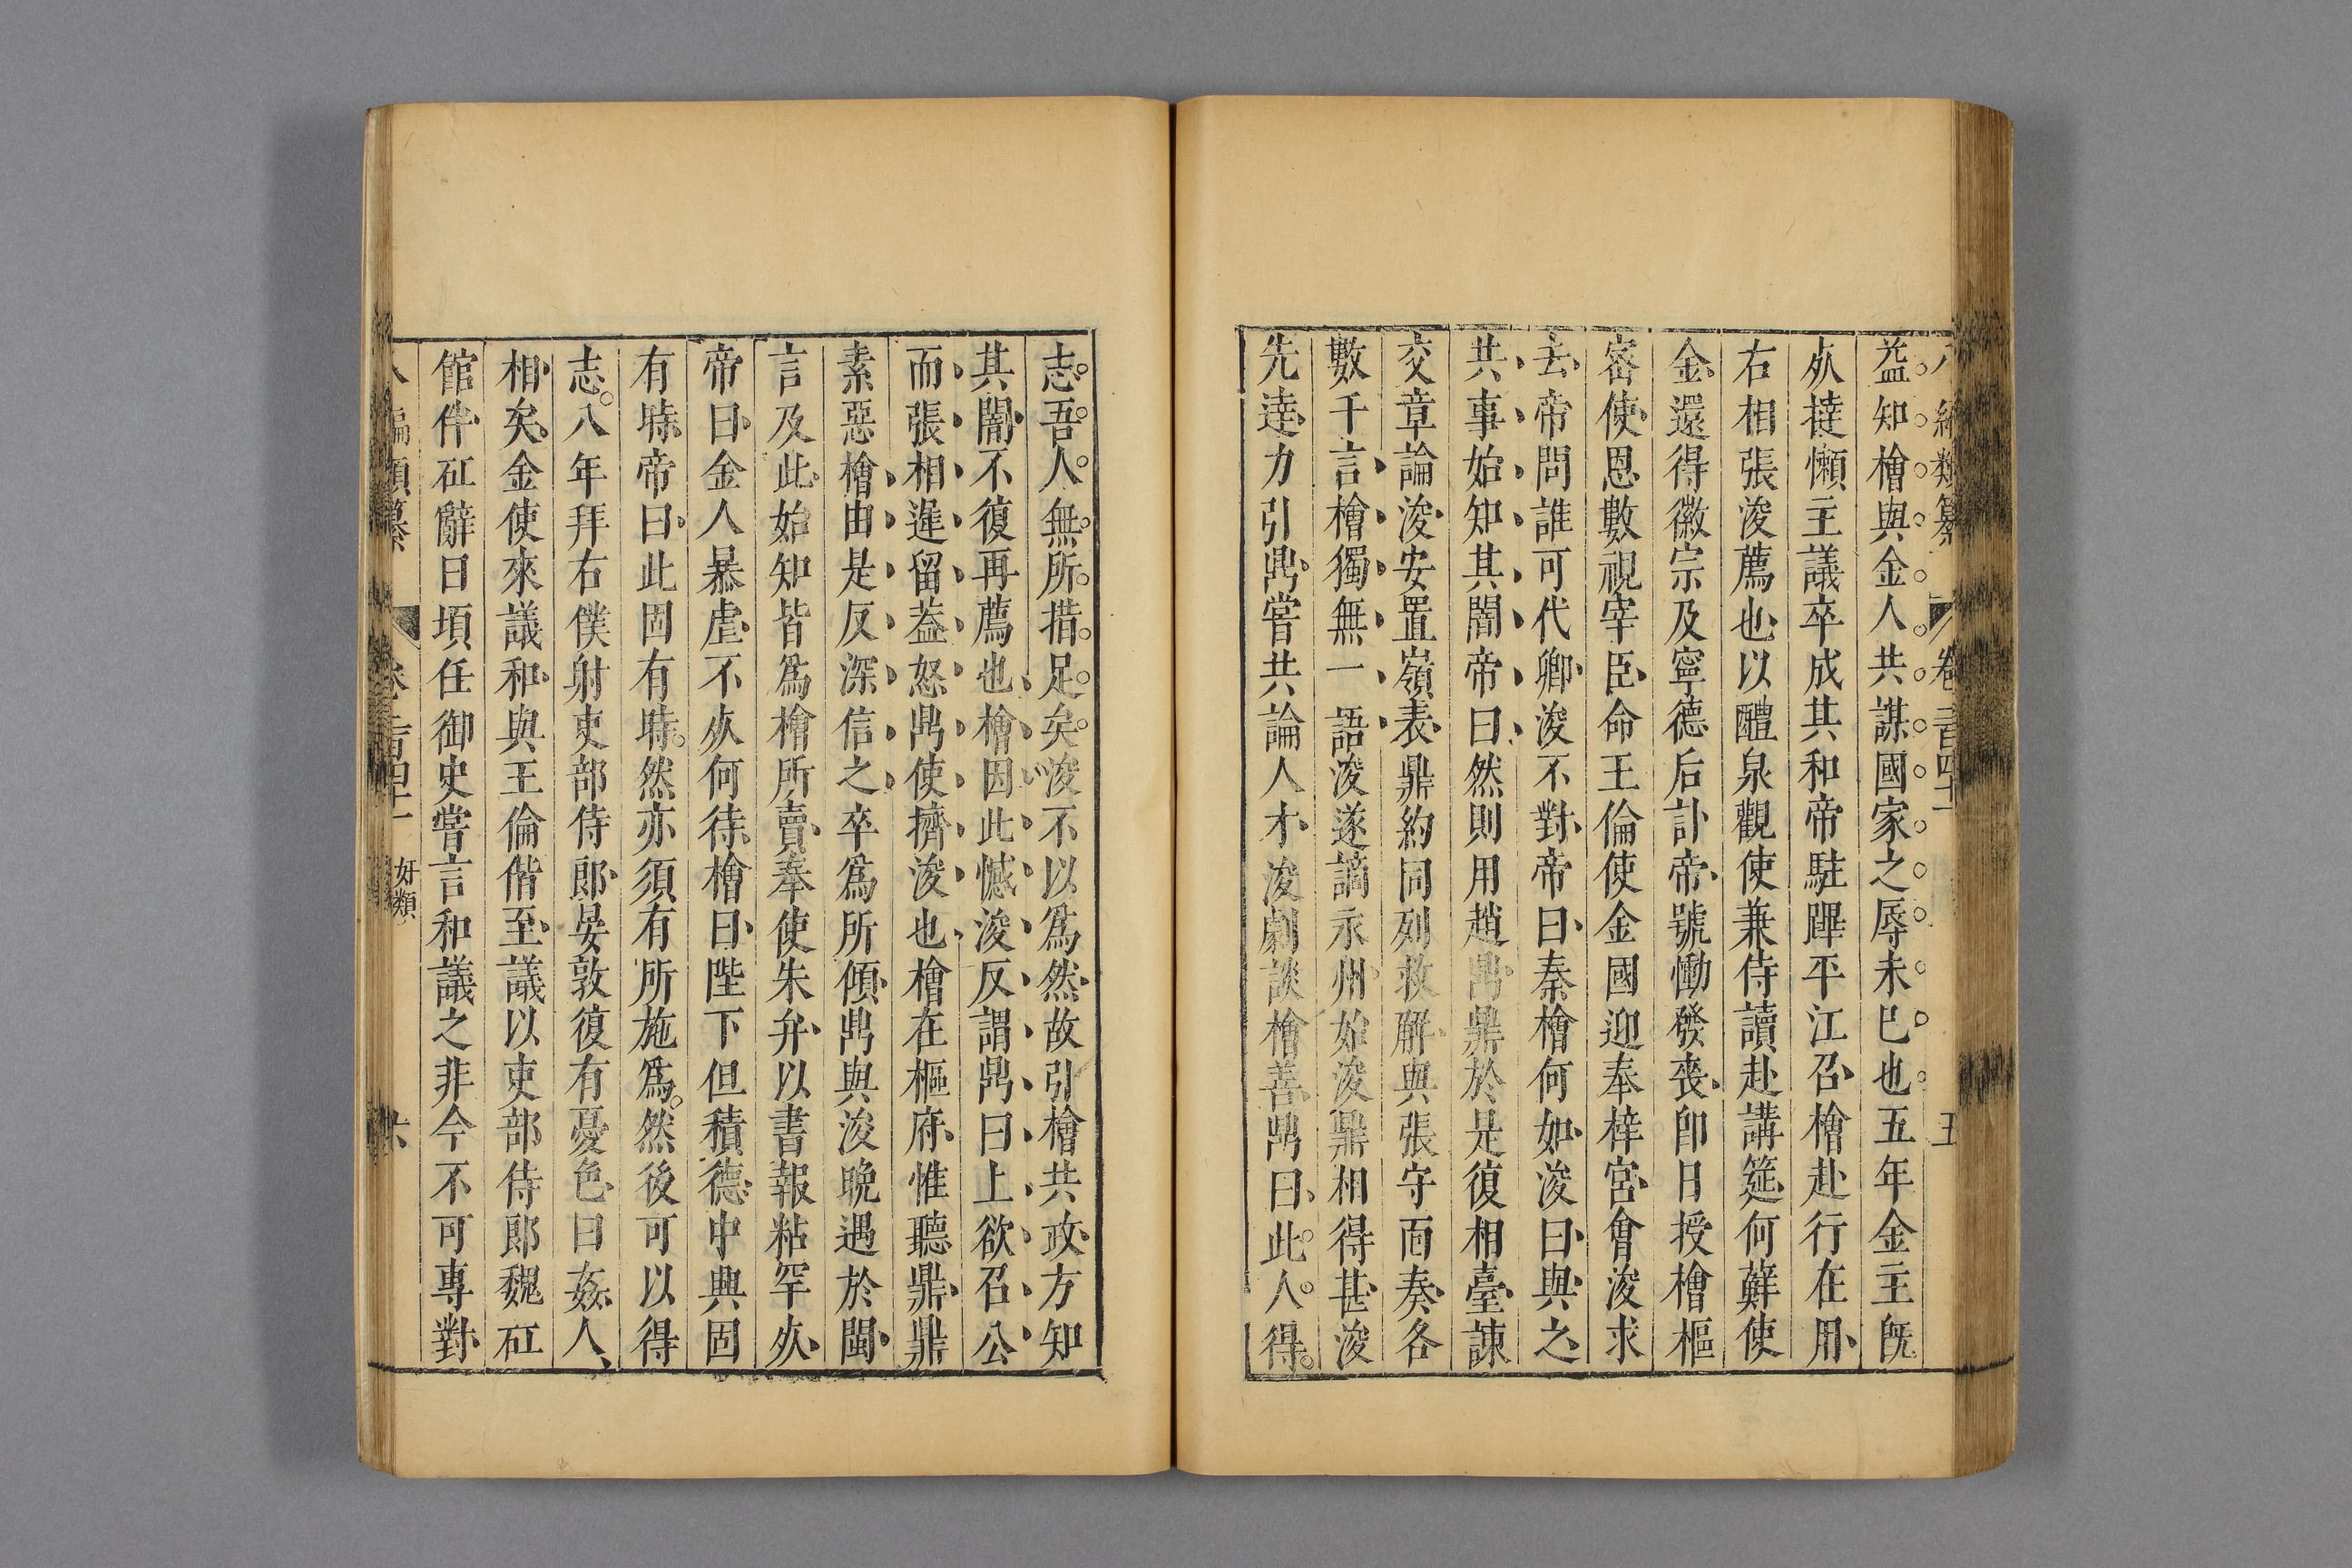 八編類纂 卷一百四十一 五
益知檜與金人共謀國家之辱未已也五年金主旣
𣦸撻懶主議卒成其和帝駐蹕平江召檜赴行在用
右相張浚薦也以醴泉觀使兼侍讀赴講筵何蘚使
金還得徽宗及寧德后訃帝號慟發喪卽日授檜樞
宻使恩數視宰臣命王倫使金國迎奉梓宮會浚求
去帝問誰可代卿浚不對帝曰秦檜何如浚曰與之
共事始知其闇帝曰然則用趙鼎鼎於是復相臺諫
交章論浚安置嶺表鼎約同列救解與張守面奏各
數千言檜獨無一語浚遂謫永州始浚鼎相得甚浚
先達力引鼎嘗共論人才浚劇談檜善鼎曰此人得
志吾人無所措足矣浚不以爲然故引檜共政方知
其闇不復再薦也檜因此憾浚反謂鼎曰上欲召公
而張相遲留葢怒鼎使擠浚也檜在樞府惟聽鼎鼎
素惡檜由是反深信之卒爲所傾鼎與浚晚遇於閩
言及此始知皆爲檜所賣奉使朱弁以書報粘罕𣦸
帝曰金人暴虐不𣦸何待檜曰陛下但積德中興固
有時帝曰此固有時然亦須有所施爲然後可以得
志八年拜右僕射吏部侍郎晏敦復有憂色曰姦人
相矣金使來議和與王倫偕至議以吏部侍郎魏矼
館伴矼辭曰頃任御史嘗言和議之非今不可專對
八編類纂 卷一百四十一 奸類 六